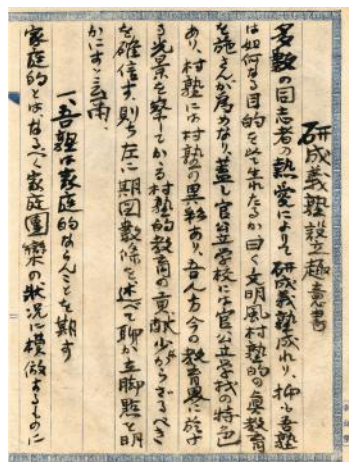 研成義塾設立趣意書
多数の同志者の熱愛によりて研成義塾成れり、抑も吾塾
は如何なる目的を以て生れたるか曰く文明風村塾的の真教育
を施さんが為めなり、蓋し官公立学校には官公立学校の特色
あり、村塾には村塾の異彩あり、吾人方今の教育界に於け
る光景を察してかゝる村塾的教育の貢献少からざるべき
を確信す、則ち左に期図数條を述べて聊か立脚點を明
かにすと云爾、
一、吾塾は家庭的ならんことを期す
家庭的とはなるべく家庭團欒の状況に模倣するものに